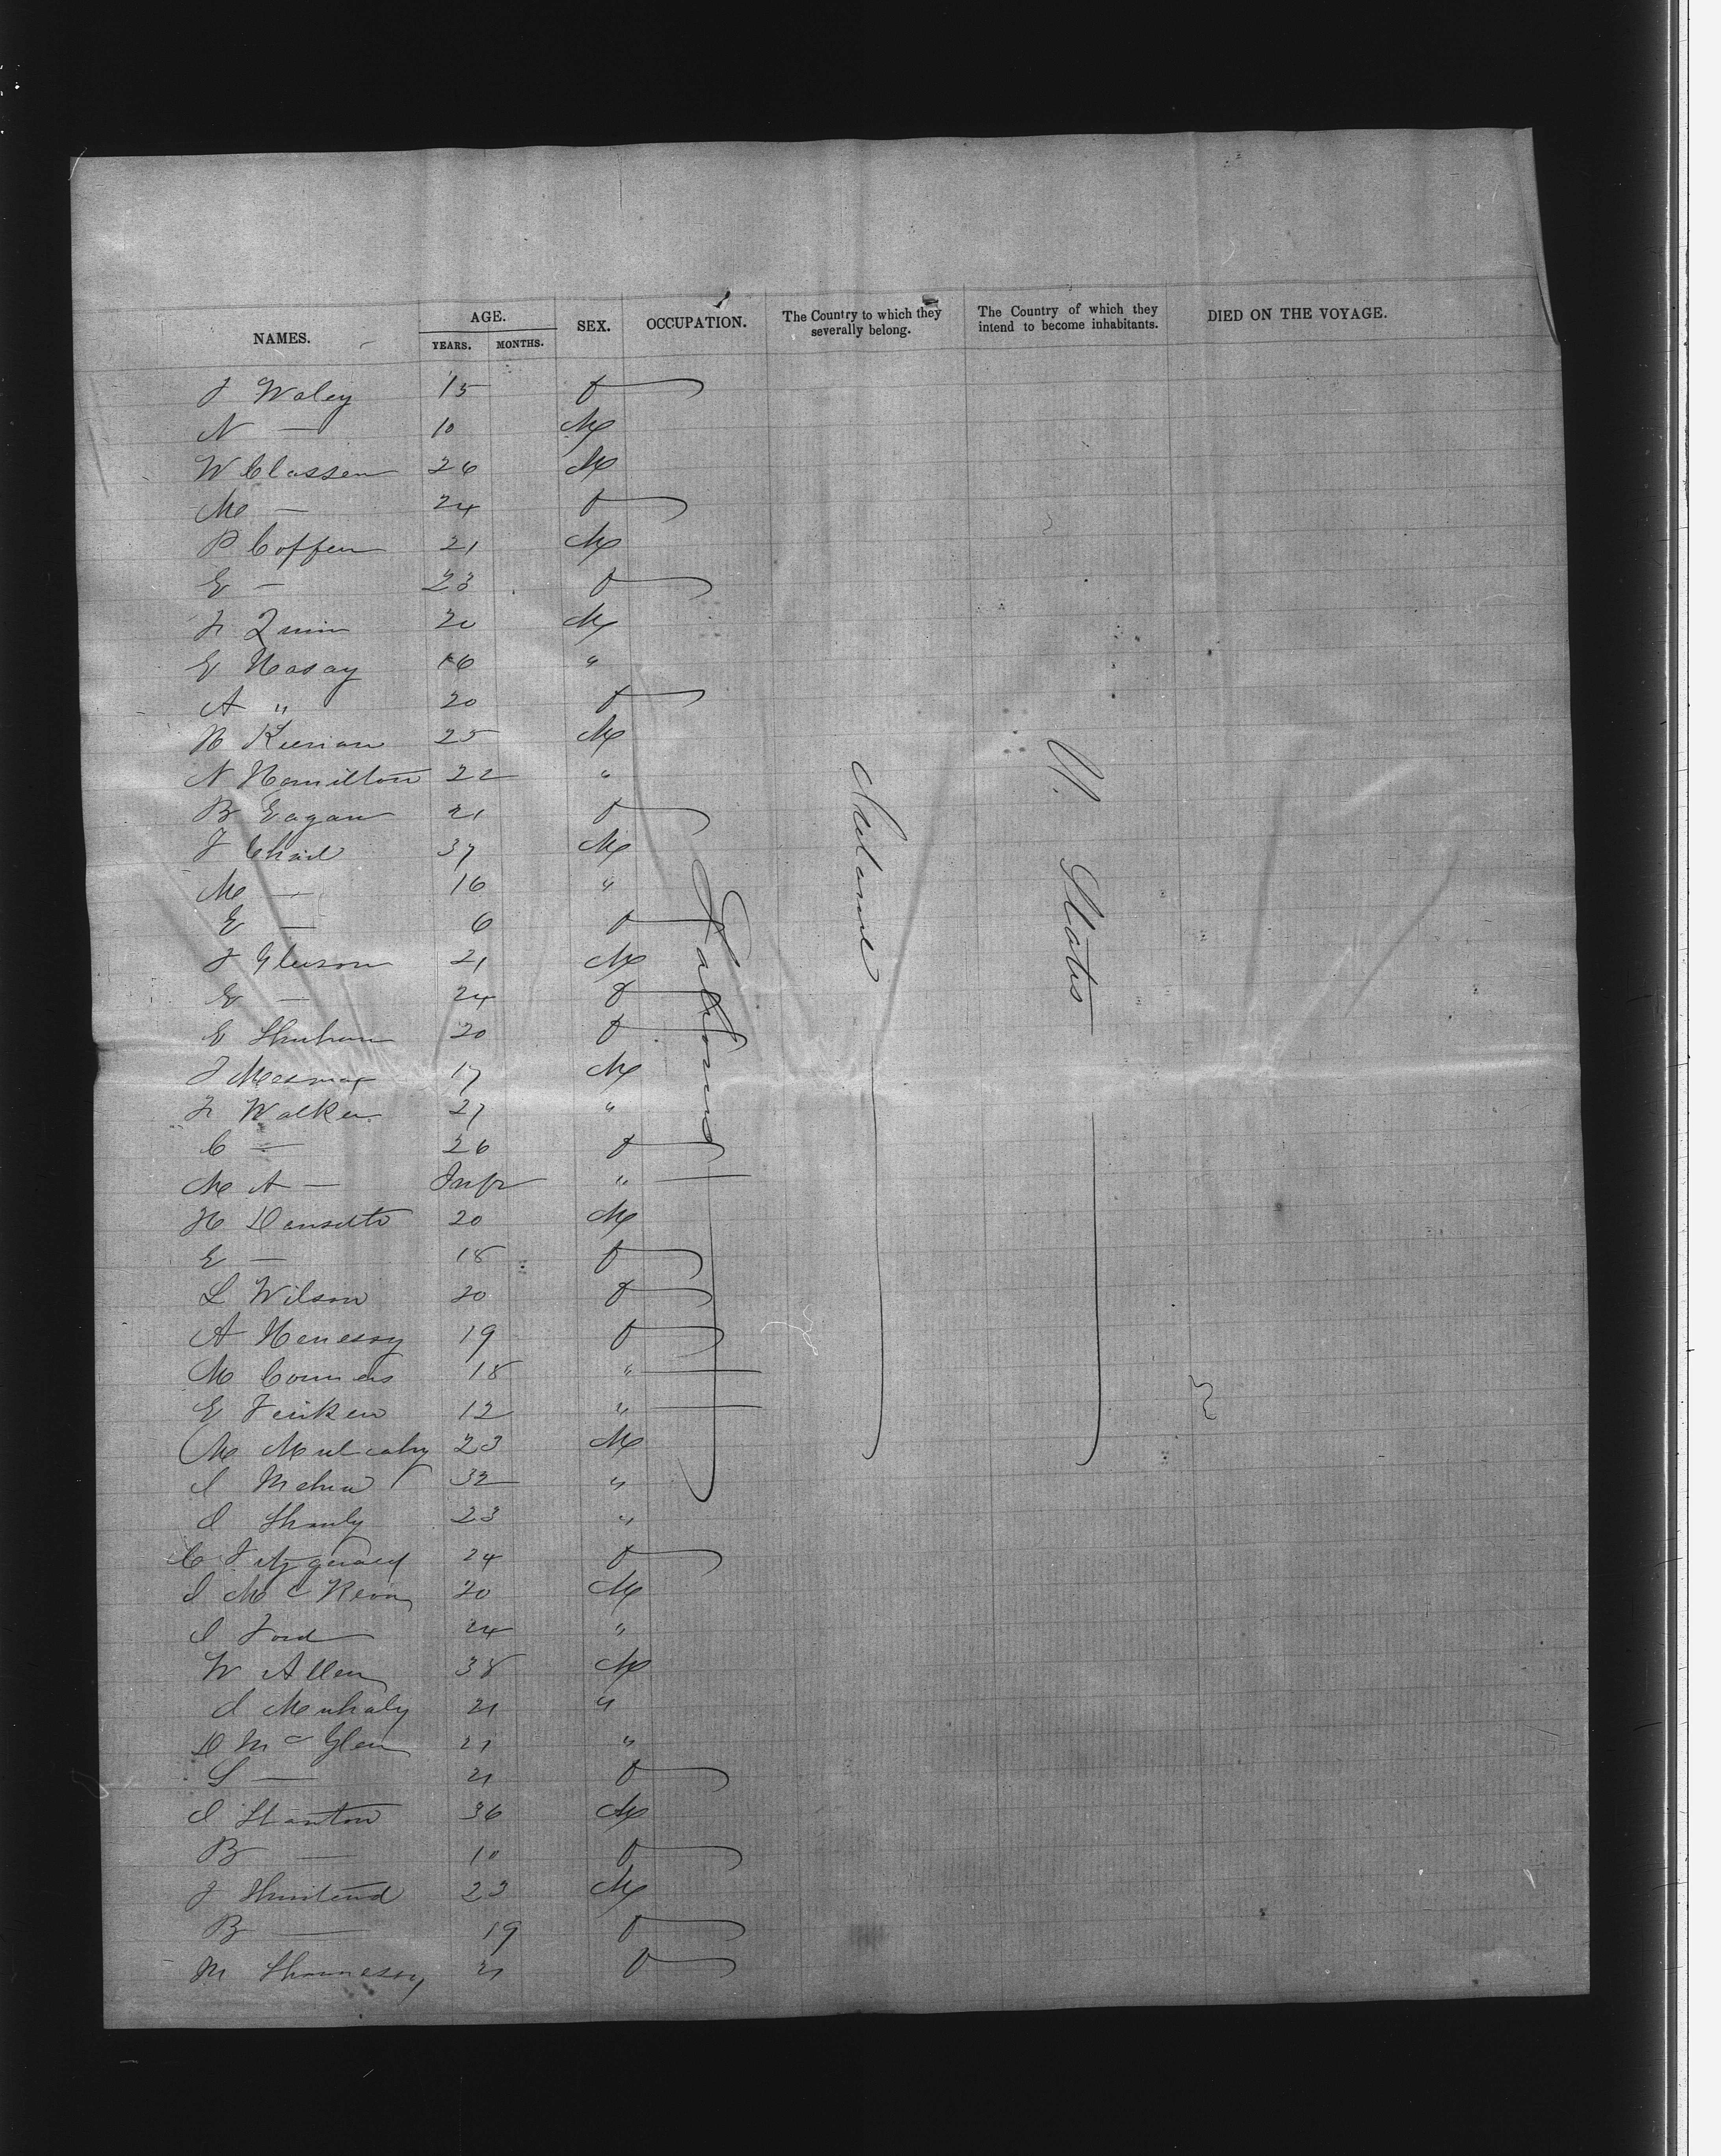 NAMES. AGE. YEARS. MONTHS. SEX. OCCUPATION. The Country to which they severally belong. The Country of which they intend to become inhabitants. DIED ON THE VOYAGE.
J Waley 15 f
N — 10 M
W Classen 26 M
M — 24 f
P Coffen 21 M
E — 23 f
Jn Quinn 20 M
E Hasay 16 "
A " 20 f
H Kiernan 25 M
N Hamilton 22 "
B Eagan 21 f
J 37 M
M — 16 "
E — 6 f
J Gleeson 21 M
E — 24 f
E 20 f
J 17 M
Jn Walker 27 "
C — 26 f
M A — Inft "
H 20 M
E — 18 f
L Wilson 20 f
A Henessy 19 f
M Conners 18 "
E 12 "
M Mulcahy 23 M
J 32 "
J 23 "
C Fitzgerald 24 f
J Mc 20 M
J Ford 24 "
W Allen 38 M
J 21 "
D Mc Glen 21 "
S — 21 f
J Stanton 36 M
B — 10 f
J 23 M
B — 19 f
M 21 f
Laborers
Ireland
U. States